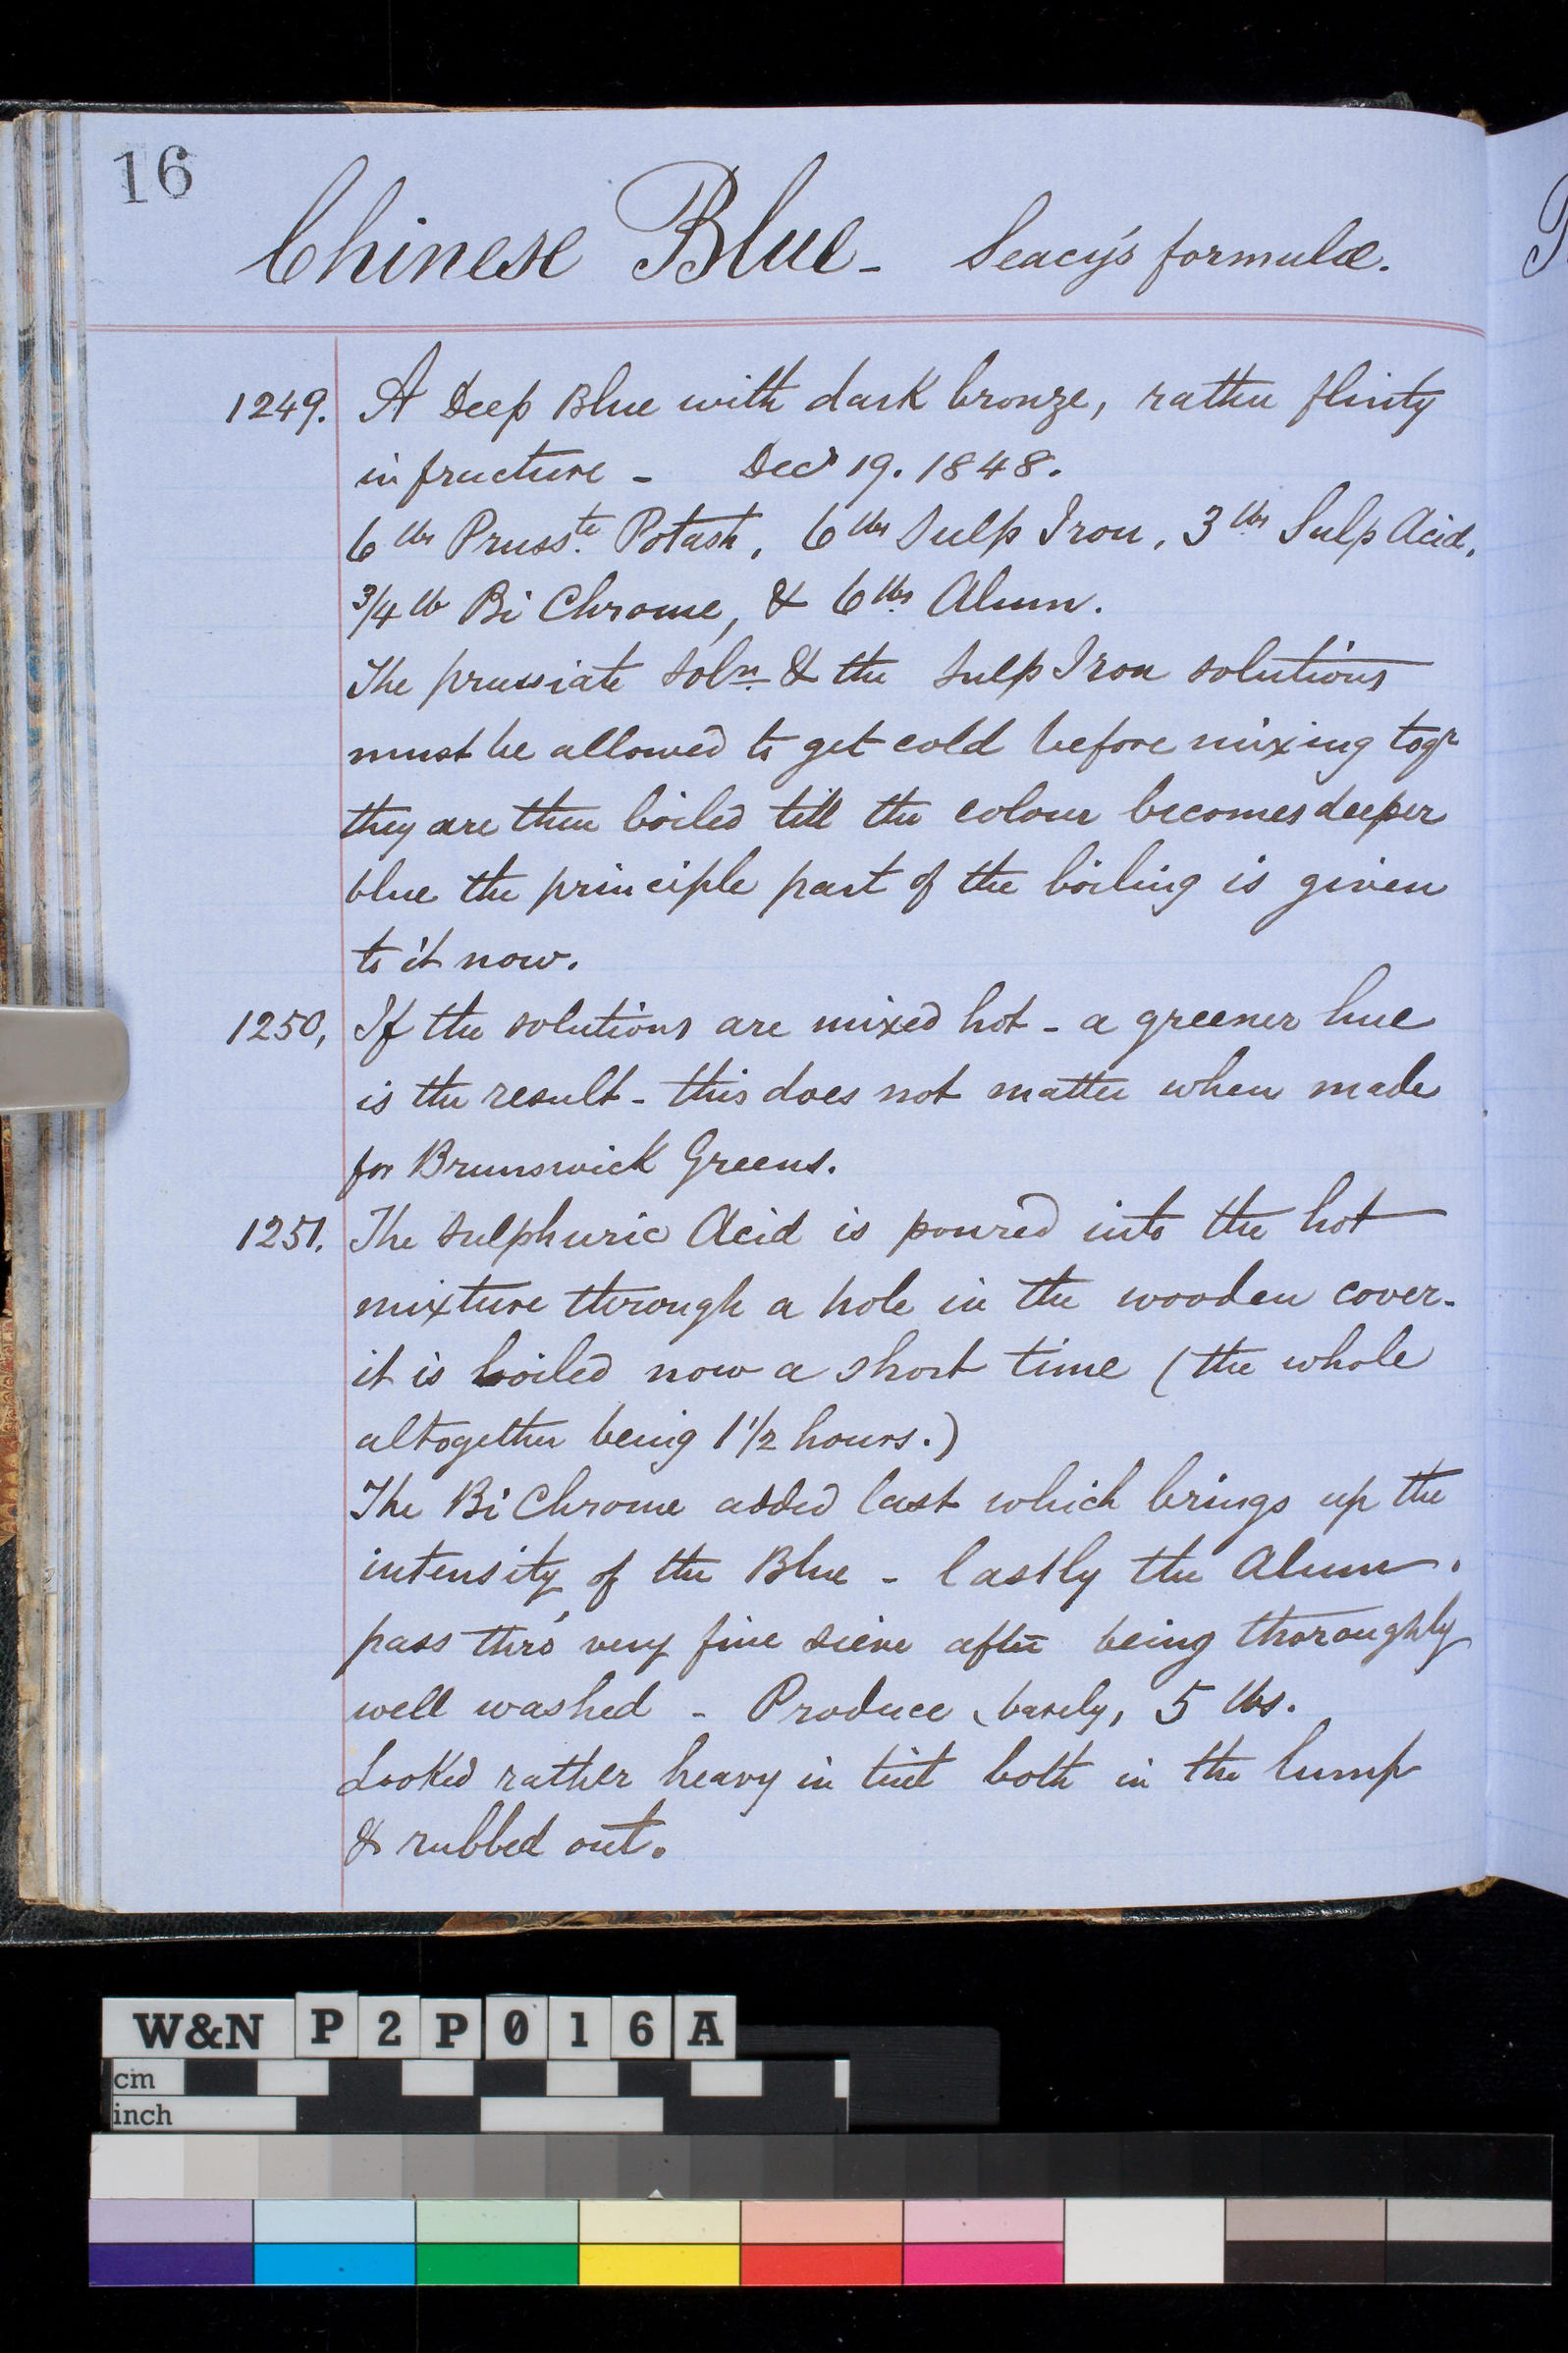 16
Chinese Blue - Seacy's formulæ.
1249. A Deep Blue with dark bronze, rather flinty
in fructure - Decr 19. 1848.
6 lbs Prusste. Potash, 6 lbs Sulp Iron, 3 lbs Sulp Acid,
3/4 lb Bi Chrome, & 6 lbs Alum.
The prussiate soln & the Sulp Iron solutions
must be allowed to get cold before mixing togr
they are then boiled till the colour becomes deeper
blue the principle part of the boiling is given
to it now.
1250, If the solutions are mixed hot - a greener hue
is the result - this does not matter when made
for Brunswick Greens.
1251. The Sulphuric Acid is poured into the hot
mixture through a hole in the wooden cover -
it is boiled now a short time (the whole
altogether being 1 1/2 hours.)
The Bi Chrome added last which brings up the
intensity of the Blue - lastly the Alum.
pass thro' very fine sieve after being thoroughly
well washed - Produce, barely, 5 lbs.
Looked rather heavy in tint both in the lump
& rubbed out.
W&N P2P016A
cm
inch